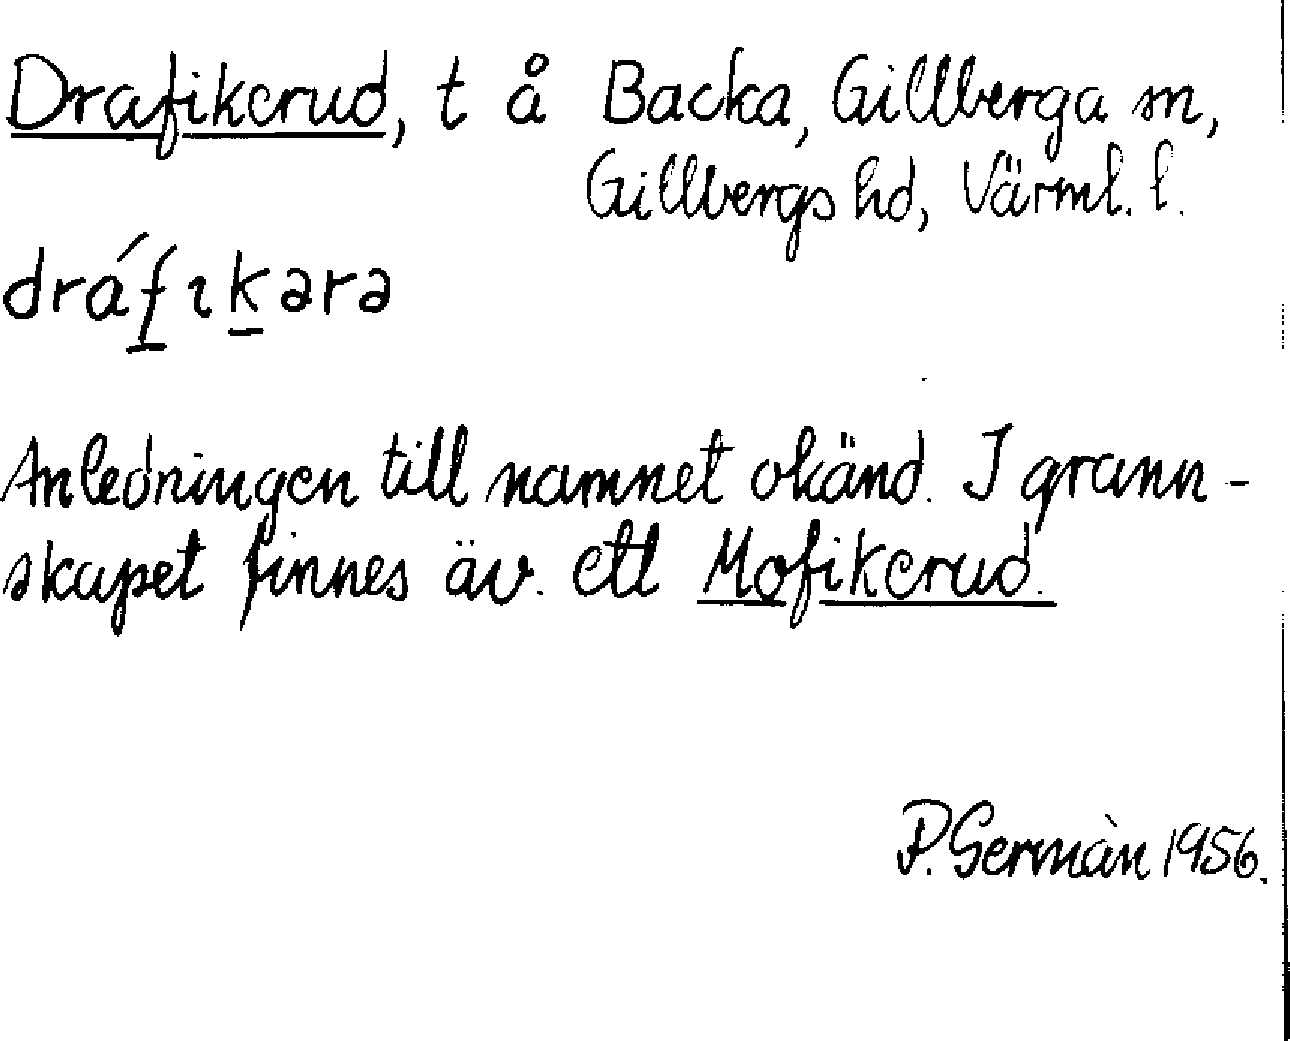 Drafikerud, t å Backa, Gillberga sn,
Gillbergs hd, Värml. l.
dráf̲ık̲ərə
Anledningen till namnet okänd. I grann-
skapet finnes äv. ett Mofikerud.
P. Germàn 1956.